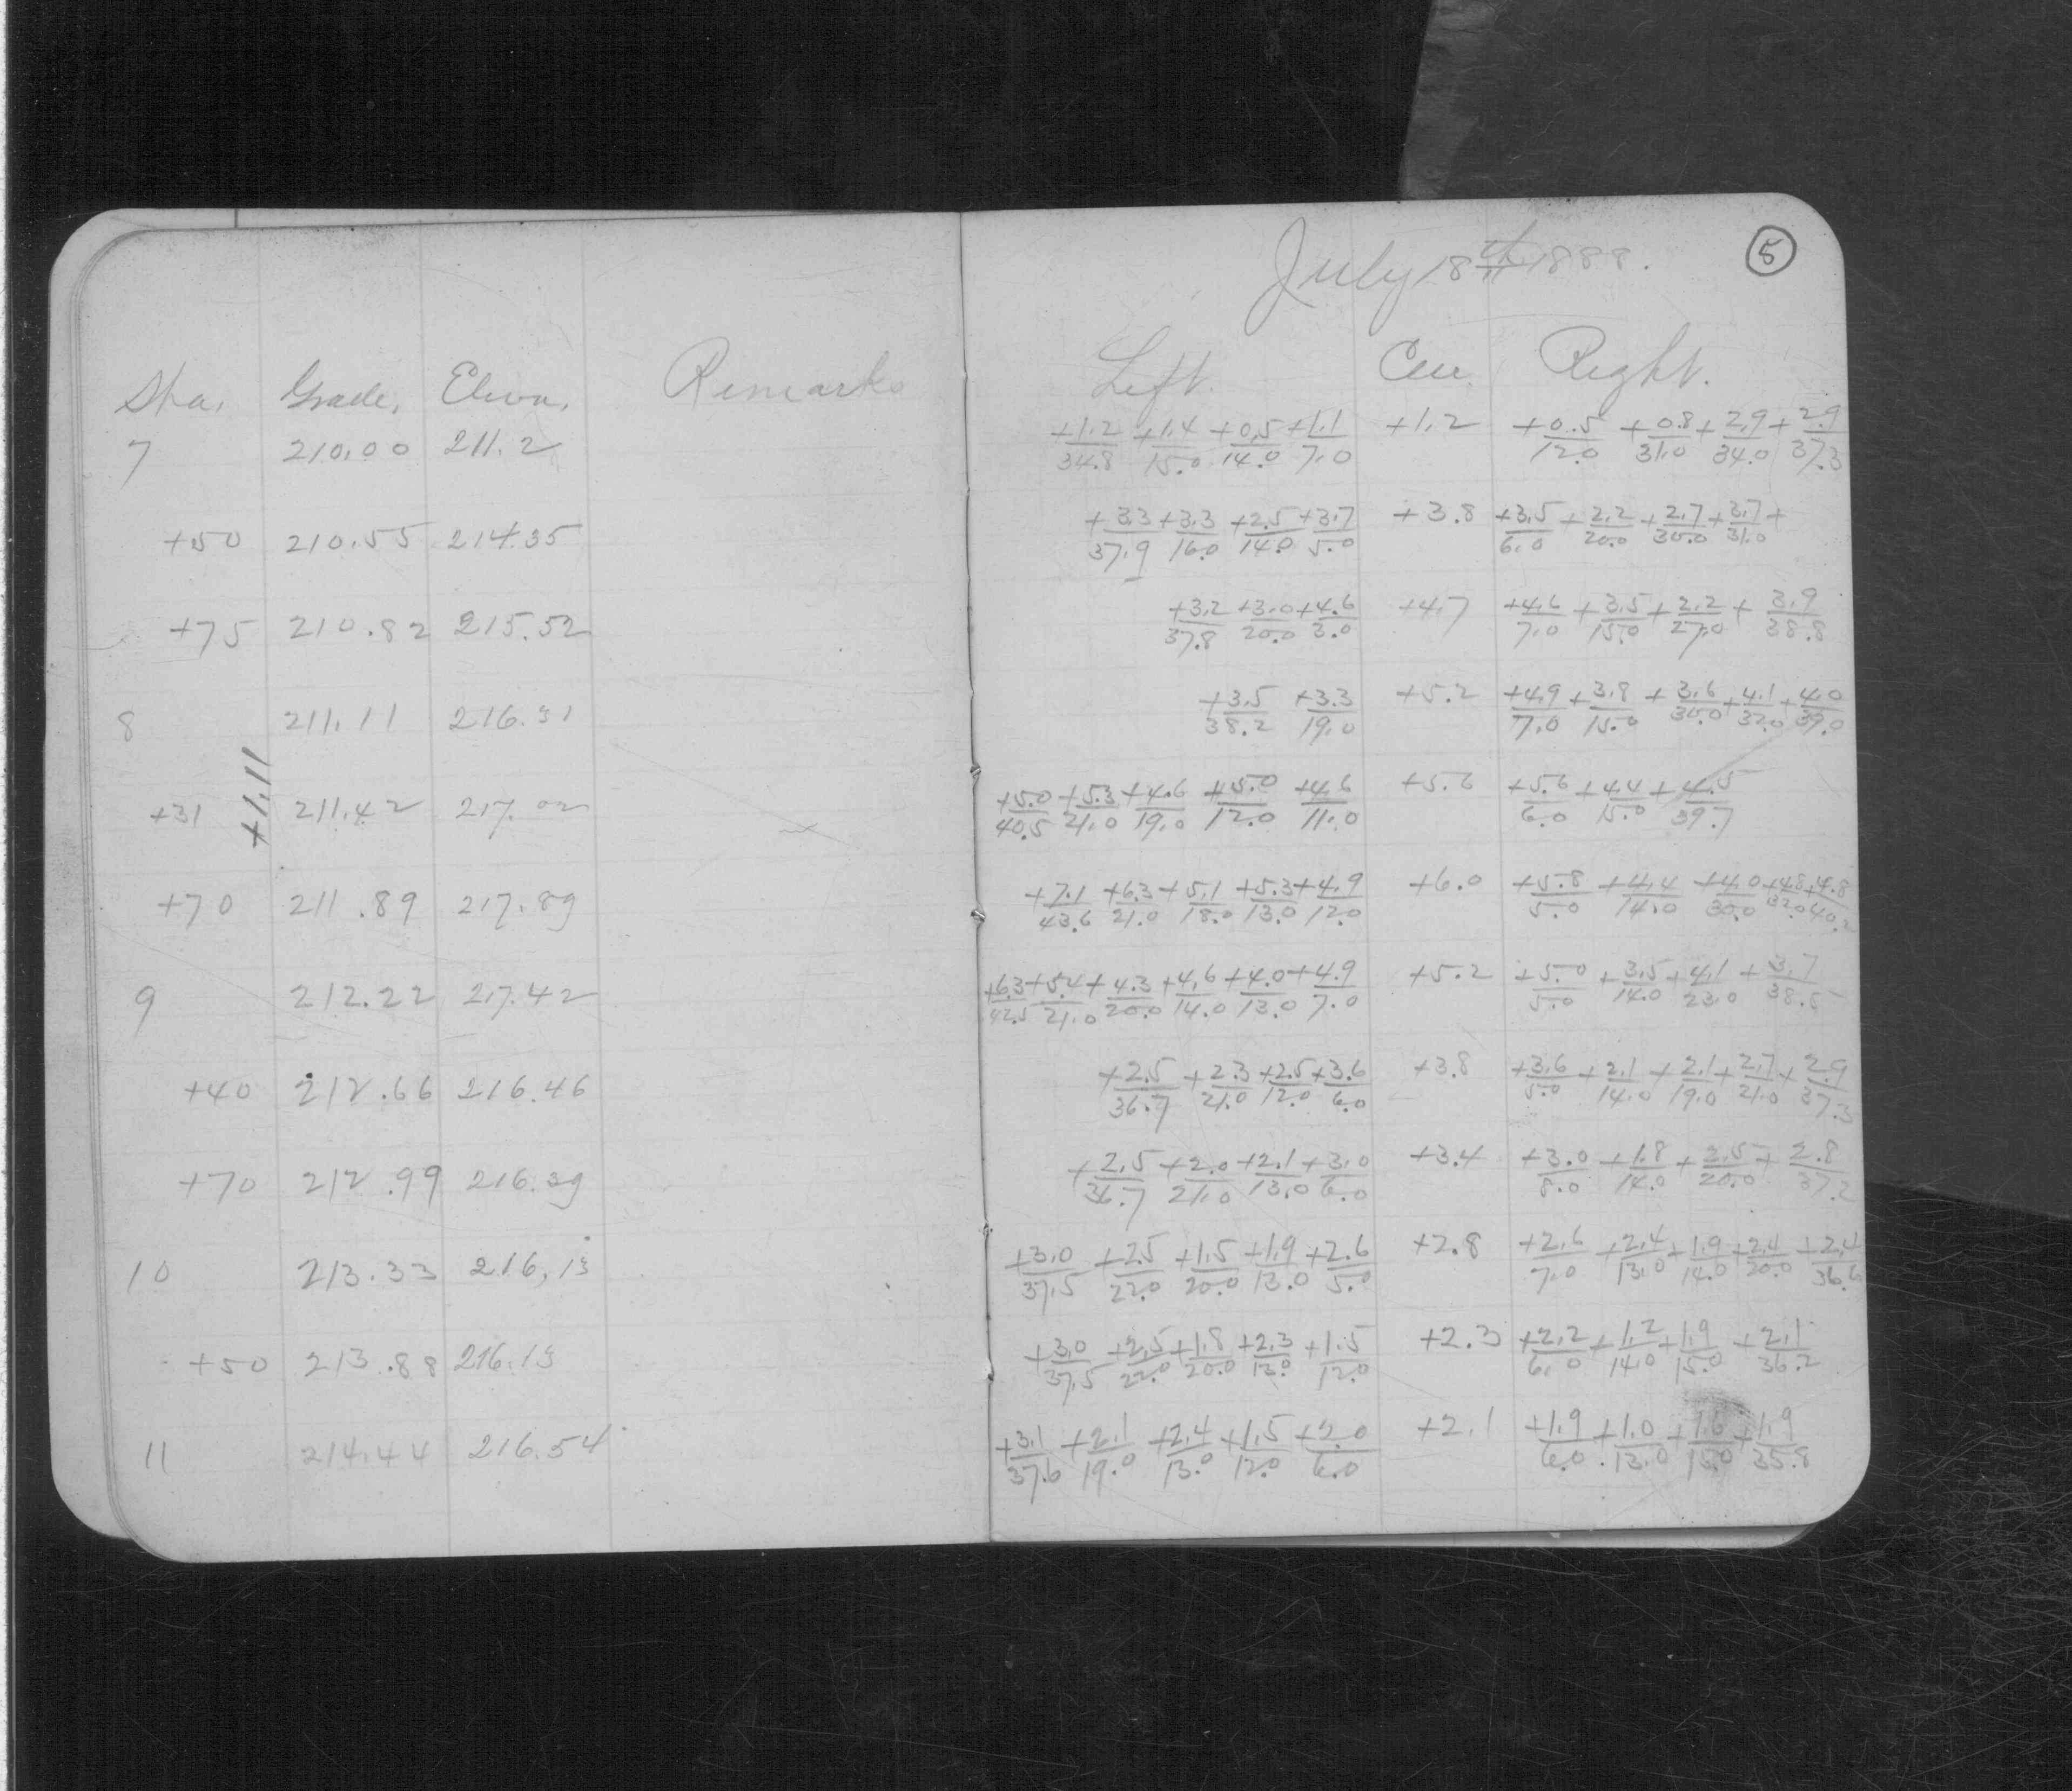 July 18th 1888.
5
Sta. Grade. Eleva. Remarks Left. Cen. Right.
7 210.00 211.2 +1.2/34.8 +1.4/15.0 +0.5/14.0 +1.1/7.0 +1.2 +0.5/12.0 +0.8/31.0 +2.9/34.0 +2.9/37.3
+50 210.55 214.35 +3.3/37.9 +3.3/16.0 +2.5/14.0 +3.7/5.0 +3.8 +3.5/6.0 +2.2/20.0 +2.7/30.0 +3.7/31.0 +
+75 210.82 215.52 +3.2/37.8 +3.0/20.0 +4.6/3.0 +4.7 +4.6/7.0 +3.5/15.0 +2.2/27.0 +3.9/38.8
8 211.11 216.31 +3.5/38.2 +3.3/19.0 +5.2 +4.9/7.0 +3.8/15.0 +3.6/30.0 +4.1/32.0 +4.0/39.0
+1.11
+31 211.42 217.02 +5.0/40.5 +5.3/21.0 +4.6/19.0 +5.0/12.0 +4.6/11.0 +5.6 +5.6/6.0 +4.4/15.0 +4.5/39.7
+70 211.89 217.89 +7.1/43.6 +6.3/21.0 +5.1/18.0 +5.3/13.0 +4.9/12.0 +6.0 +5.8/5.0 +4.4/14.0 +4.0/30.0 +4.8/32.0 +4.8/40.2
9 212.22 217.42 +6.3/42.5 +5.4/21.0 +4.3/20.0 +4.6/14.0 +4.0/13.0 +4.9/7.0 +5.2 +5.0/5.0 +3.5/14.0 +4.1/23.0 +3.7/38.5
+40 212.66 216.46 +2.5/36.7 +2.3/21.0 +2.5/12.0 +3.6/6.0 +3.8 +3.6/5.0 +2.1/14.0 +2.1/19.0 +2.7/21.0 +2.9/37.3
+70 212.99 216.39 +2.5/36.7 +2.0/21.0 +2.1/13.0 +3.0/6.0 +3.4 +3.0/8.0 +1.8/14.0 +2.5/20.0 +2.8/37.2
10 213.33 216.13 +3.0/37.5 +2.5/22.0 +1.5/20.0 +1.9/13.0 +2.6/5.0 +2.8 +2.6/7.0 +2.4/13.0 +1.9/14.0 +2.4/20.0 +2.4/36.6
+50 213.88 216.18 +3.0/37.5 +2.5/22.0 +1.8/20.0 +2.3/13.0 +1.5/12.0 +2.3 +2.2/6.0 +1.2/14.0 +1.9/15.0 +2.1/36.2
11 214.44 216.54 +3.1/37.6 +2.1/19.0 +2.4/13.0 +1.5/12.0 +2.0/6.0 +2.1 +1.9/6.0 +1.0/13.0 +1.6/15.0 +1.9/35.8